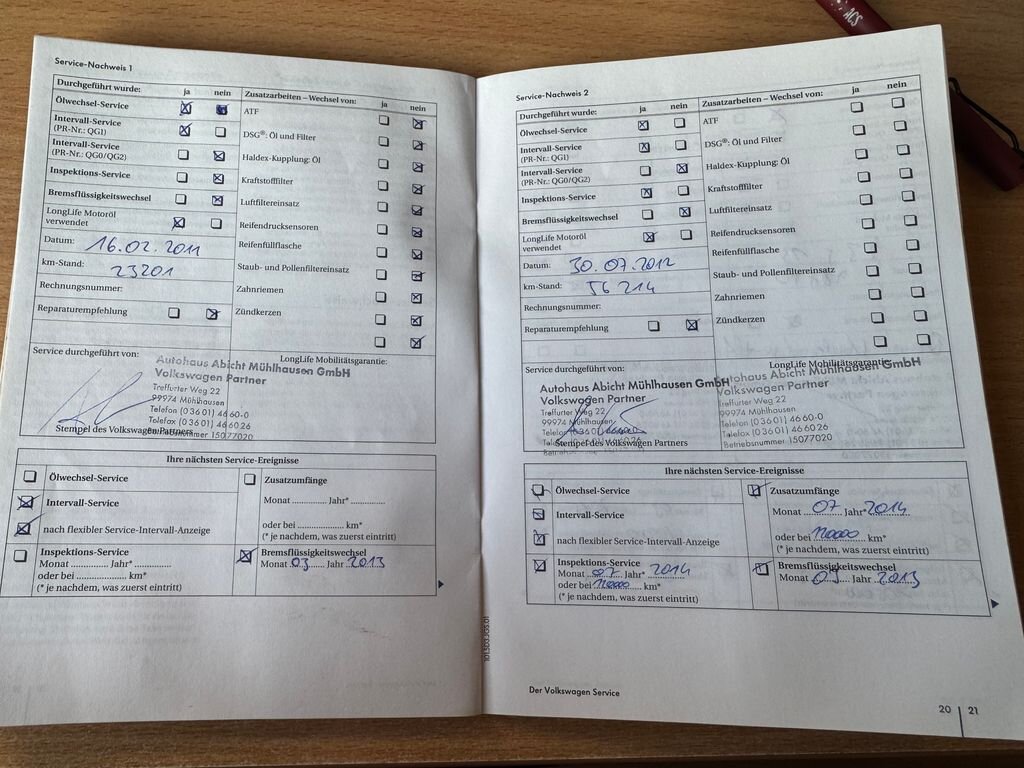 ACS
Service-Nachweis 1
Durchgeführt wurde: ja nein
Ölwechsel-Service
Intervall-Service
(PR-Nr.: QG1)
Intervall-Service
(PR-Nr.: QG0/QG2)
Inspektions-Service
Bremsflüssigkeitswechsel
LongLife Motoröl
verwendet
Datum: 16.02.2011
km-Stand: 23201
Rechnungsnummer:
Reparaturempfehlung
Zusatzarbeiten – Wechsel von: ja nein
ATF
DSG®: Öl und Filter
Haldex-Kupplung: Öl
Kraftstofffilter
Luftfiltereinsatz
Reifendrucksensoren
Reifenfüllflasche
Staub- und Pollenfiltereinsatz
Zahnriemen
Zündkerzen
Service durchgeführt von: LongLife Mobilitätsgarantie:
Autohaus Abicht Mühlhausen GmbH
Volkswagen Partner
Treffurter Weg 22
99974 Mühlhausen
Telefon (0 36 01) 46 60-0
Telefax (0 36 01) 46 60 26
Betriebsnummer 15077020
Stempel des Volkswagen Partners
Ihre nächsten Service-Ereignisse
Ölwechsel-Service
Intervall-Service
nach flexibler Service-Intervall-Anzeige
Inspektions-Service
Monat ............ Jahr* ............
oder bei ............ km*
(* je nachdem, was zuerst eintritt)
Zusatzumfänge
Monat ............ Jahr* ............
oder bei ............ km*
(* je nachdem, was zuerst eintritt)
Bremsflüssigkeitswechsel
Monat 03 Jahr 2013
Service-Nachweis 2
Durchgeführt wurde: ja nein
Ölwechsel-Service
Intervall-Service
(PR-Nr.: QG1)
Intervall-Service
(PR-Nr.: QG0/QG2)
Inspektions-Service
Bremsflüssigkeitswechsel
LongLife Motoröl
verwendet
Datum: 30.07.2012
km-Stand: 56214
Rechnungsnummer:
Reparaturempfehlung
Zusatzarbeiten – Wechsel von: ja nein
ATF
DSG®: Öl und Filter
Haldex-Kupplung: Öl
Kraftstofffilter
Luftfiltereinsatz
Reifendrucksensoren
Reifenfüllflasche
Staub- und Pollenfiltereinsatz
Zahnriemen
Zündkerzen
Service durchgeführt von: LongLife Mobilitätsgarantie:
Autohaus Abicht Mühlhausen GmbH
Volkswagen Partner
Treffurter Weg 22
99974 Mühlhausen
Stempel des Volkswagen Partners
Autohaus Abicht Mühlhausen GmbH
Volkswagen Partner
Treffurter Weg 22
99974 Mühlhausen
Telefon (0 36 01) 46 60-0
Telefax (0 36 01) 46 60 26
Betriebsnummer 15077020
Ihre nächsten Service-Ereignisse
Ölwechsel-Service
Intervall-Service
nach flexibler Service-Intervall-Anzeige
Inspektions-Service
Monat 07 Jahr* 2014
oder bei 120000 km*
(* je nachdem, was zuerst eintritt)
Zusatzumfänge
Monat 07 Jahr* 2014
oder bei 120000 km*
(* je nachdem, was zuerst eintritt)
Bremsflüssigkeitswechsel
Monat 03 Jahr 2013
Der Volkswagen Service
20 | 21